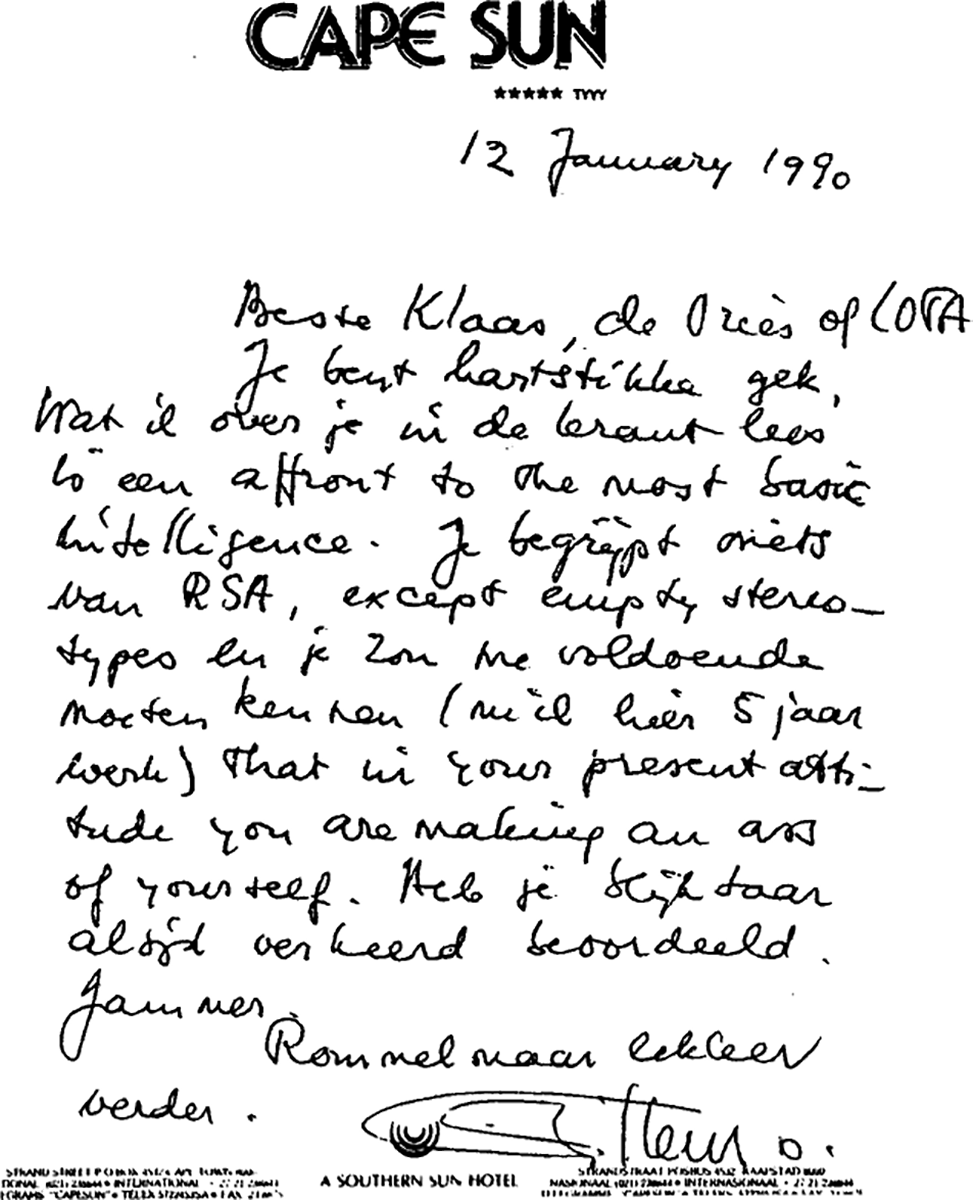 CAPE SUN
★★★★★ TYYY
12 January 1990
Beste Klaas, de Vries of LOVA
Je bent hartstikke gek.
Wat ik over je in de krant lees
is een affront to the most basic
intelligence. Je begrijpt niets
van RSA, except empty stereo-
types en je zou me voldoende
moeten kennen (nu ik hier 5 jaar
werk) that in your present atti-
tude you are making an ass
of yourself. Heb je blijkbaar
altijd verkeerd beoordeeld.
Jammer.
Rommel maar lekker
verder.
A SOUTHERN SUN HOTEL